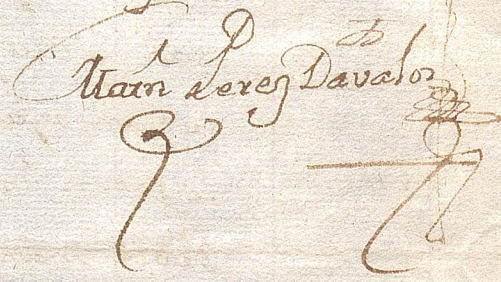 Martín Perez Davalos